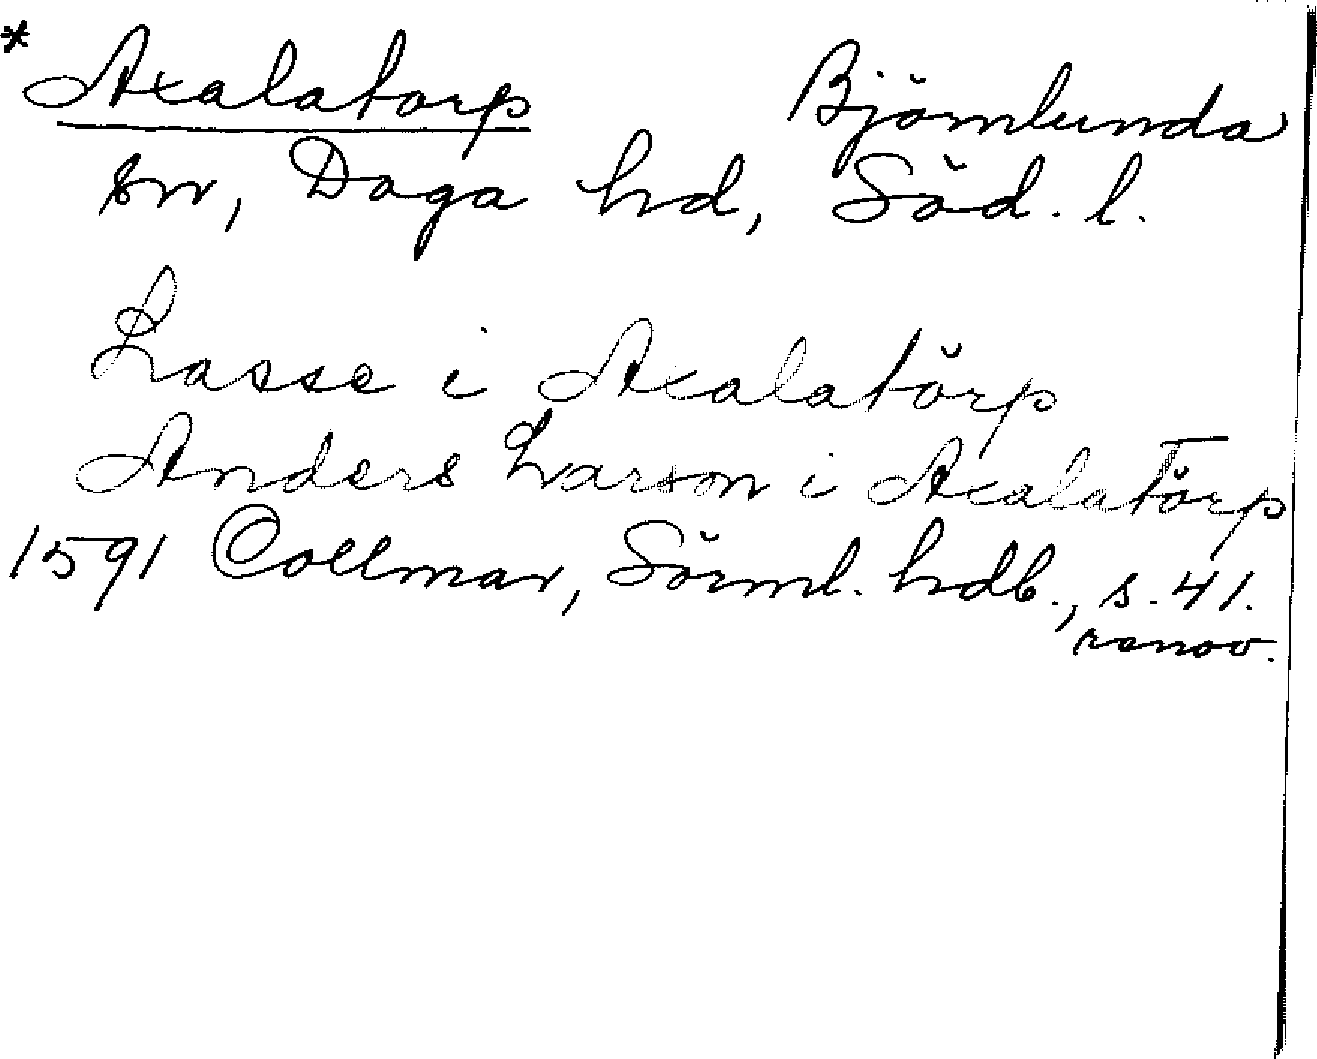 * Axalatorp Björnlunda
sn, Daga hd, Söd. l.
Lasse i Axalatörp
Anders Larson i Axalatörp
1591 Collmar, Sörml. hdb., s. 41.
renov.